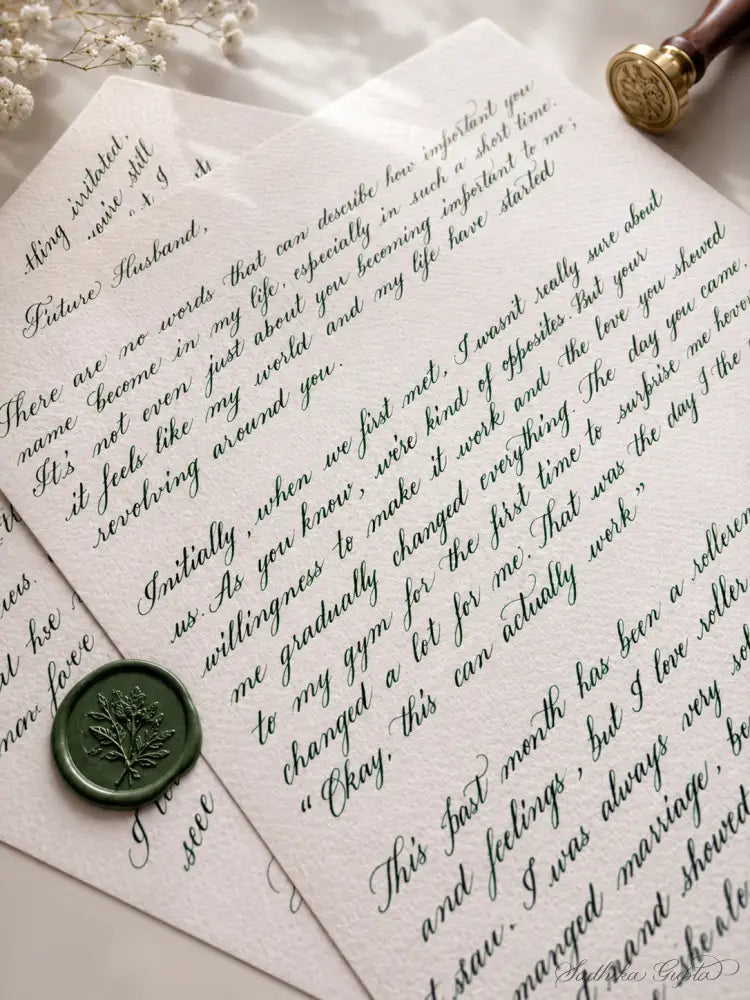 thing irritated,
you're still
Future Husband,
There are no words that can describe how important you
name become in my life, especially in such a short time.
It's not even just about you becoming important to me;
it feels like my world and my life have started
revolving around you.
Initially, when we first met, I wasn't really sure about
us. As you know, we're kind of opposites. But your
willingness to make it work and the love you showed
me gradually changed everything. The day you came,
to my gym for the first time to surprise me
changed a lot for me. That was the day I the
"Okay, this can actually work"
This past month has been a
and feelings, but I love roller
I was always very
manged marriage,
and showed
she
see
Sadhika Gupta